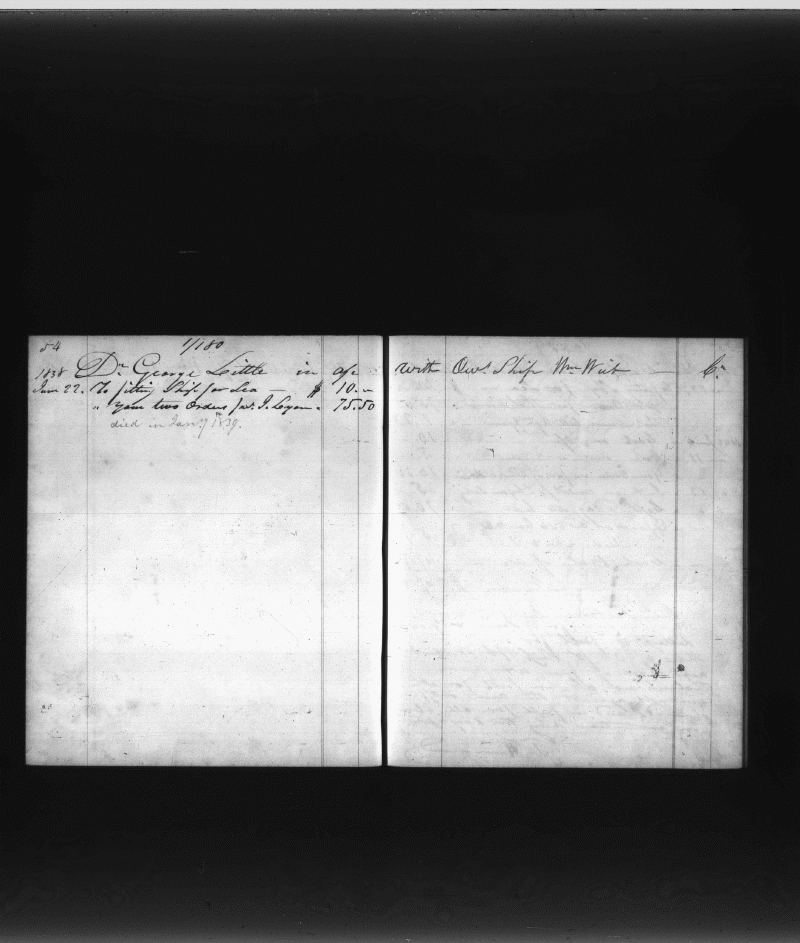 54
1/180
1838 Dr George Little in a/c with Owrs Ship Wm Wirt Cr
June 22. To fitting Ship for Sea — $ 10.—
" your two Orders favr J. Logan " 75.50
died in Jany 1839.